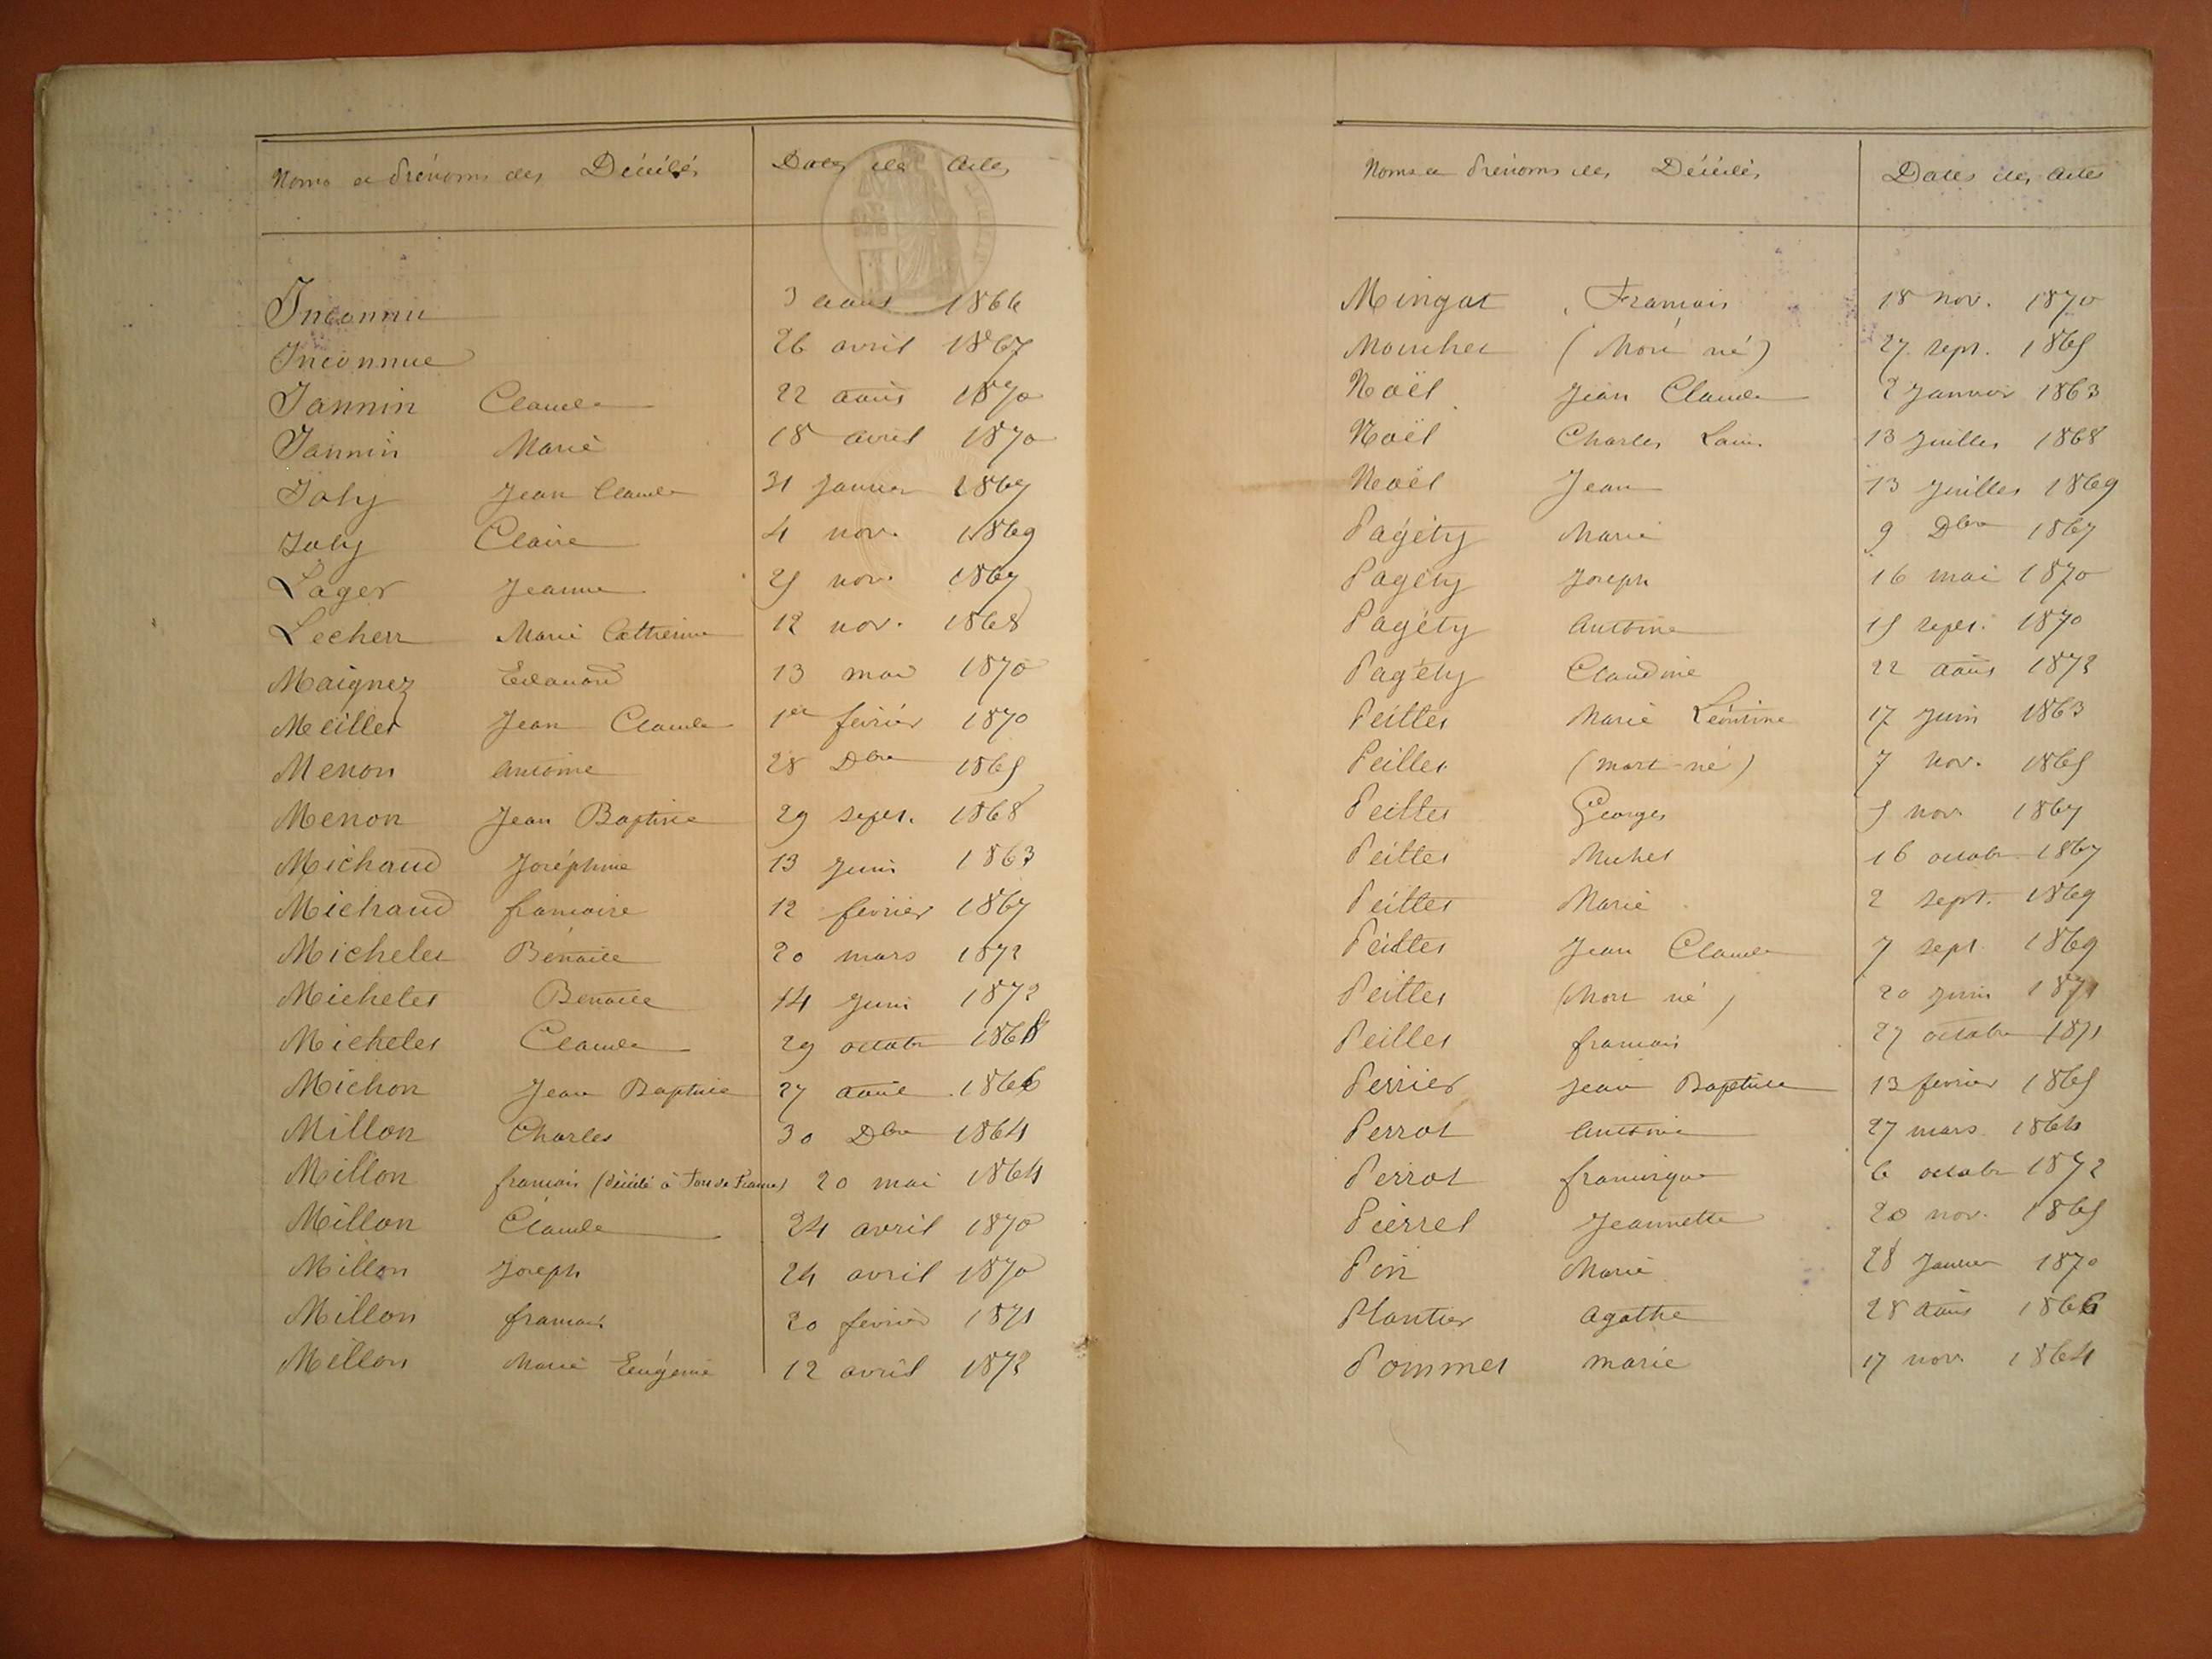 Noms et Prénoms des Décédés Dates des Actes
Inconnu 3 août 1866
Inconnue 26 avril 1867
Jannin Claude 22 août 1870
Jannin Marie 18 avril 1870
Joly Jean Claude 31 Janvier 1867
Joly Claire 4 nov. 1869
Lager Jeanne 25 nov. 1867
Lecherr Marie Catherine 12 nov. 1868
Maignez Edouard 13 mai 1870
Meillet Jean Claude 1er février 1870
Menon Antoine 28 Dbre 1865
Menon Jean Baptiste 29 sept. 1868
Michaud Joséphine 13 Juin 1863
Michaud françoise 12 février 1867
Michelet Benoite 20 mars 1872
Michelet Benoite 14 Juin 1872
Michelet Claude 29 octobre 1868
Michon Jean Baptiste 27 août 1866
Millon Charles 30 Dbre 1864
Millon françois (décédé à Fort de France) 20 mai 1864
Millon Claude 24 avril 1870
Millon Joseph 24 avril 1870
Millon françois 20 février 1871
Millon Marie Eugénie 12 avril 1872
Noms et Prénoms des Décédés Dates des Actes
Mingat François 18 nov. 1870
Mouchet (Mort né) 27 sept. 1865
Noël Jean Claude 2 Janvier 1863
Noël Charles Louis 13 Juillet 1868
Noël Jean 13 Juillet 1869
Pagéty Marie 9 Dbre 1867
Pagéty Joseph 16 mai 1870
Pagéty Antoine 15 sept. 1870
Pagéty Claudine 22 août 1872
Peillet Marie Léontine 17 Juin 1863
Peillet (mort-né) 7 nov. 1865
Peillet Georges 5 nov. 1867
Peillet Michel 16 octobre 1867
Peillet Marie 2 sept. 1869
Peillet Jean Claude 7 sept. 1869
Peillet (Mort né) 20 Juin 1871
Peillet françois 27 octobre 1871
Perrier Jean Baptiste 13 février 1865
Perrot Antoine 27 mars 1864
Perrot francisque 6 octobre 1872
Pierrel Jeannette 20 nov. 1865
Pin Marie 28 Janvier 1870
Plantier Agathe 28 août 1866
Pommet marie 17 nov. 1864